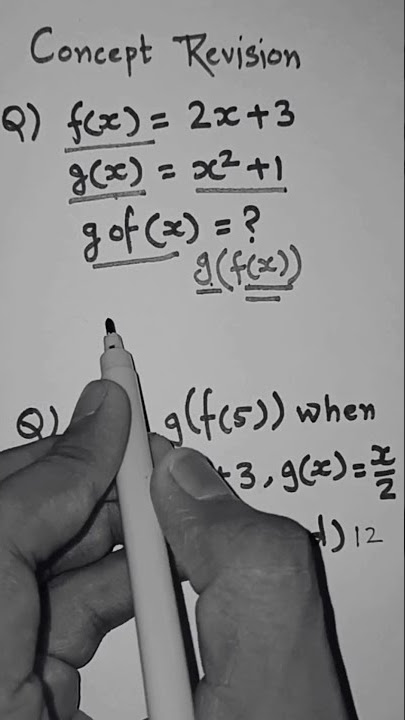 Concept Revision
Q) f(x) = 2x+3
g(x) = x²+1
gof(x) = ?
g(f(x))
Q) g(f(5)) when
+3, g(x) = x/2
d) 12